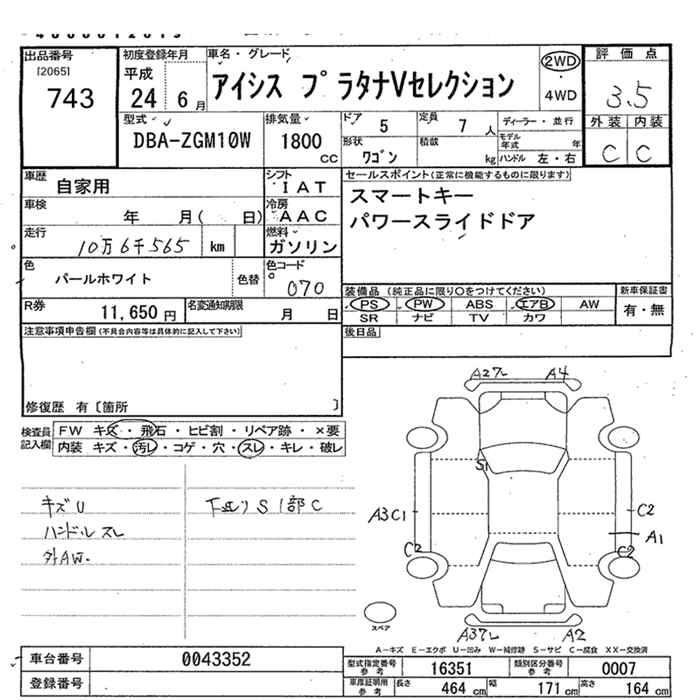 出品番号
[20651
743
初度登録年月
平成
24 6月
車名・グレード
アイシス プラタナVセレクション
2WD
・
4WD
評価点
3.5
外装 内装
C C
型式
DBA-ZGM10W
排気量
1800
cc
ドア 5
定員 7 人
ディーラー・並行
モデル年式 年
形状 ワゴン
積載 kg
ハンドル 左・右
車歴
自家用
シフト
IAT
セールスポイント(正常に機能するものに限ります)
スマートキー
パワースライドドア
車検
年 月( 日)
冷房
AAC
走行
10万6千565 km
燃料
ガソリン
色
パールホワイト
色替
色コード
070
装備品(純正品に限り○をつけてください)
新車保証書
PS PW ABS エアB AW
SR ナビ TV カワ
有・無
R券
11,650円
名変通知期限
月 日
注意事項申告欄(不具合内容等は具体的に記入して下さい)
後日品
修復歴 有〔箇所 〕
検査員記入欄
FW キズ・飛石・ヒビ割・リペア跡・×要
内装 キズ・汚レ・コゲ・穴・スレ・キレ・破レ
キズU
ハンドルスレ
外AW.
下廻りS 1部C
A27L A4
S1
A3C1
C2
C2
A1
C2
スペア
A37L A2
A－キズ E－エクボ U－凹み W－補修跡 S－サビ C－腐食 XX－交換済
車台番号
0043352
登録番号
型式指定番号
参考
16351
類別区分番号
参考
0007
車庫証明用
参考
長さ 464 cm
幅 171 cm
高さ 164 cm